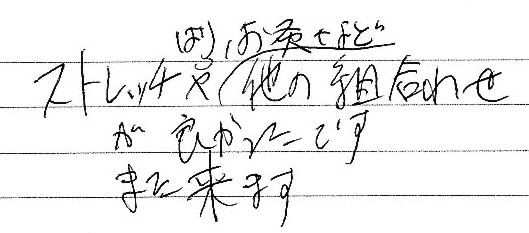 はり、お灸など
ストレッチや他の組合わせ
が良かったです
また来ます